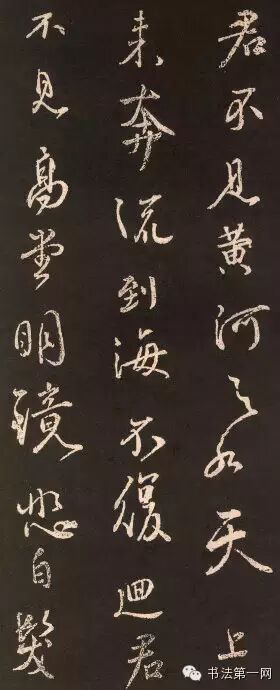 君不見黃河之水天上
来奔流到海不復迴君
不見高堂明鏡悲白髮
书法第一网